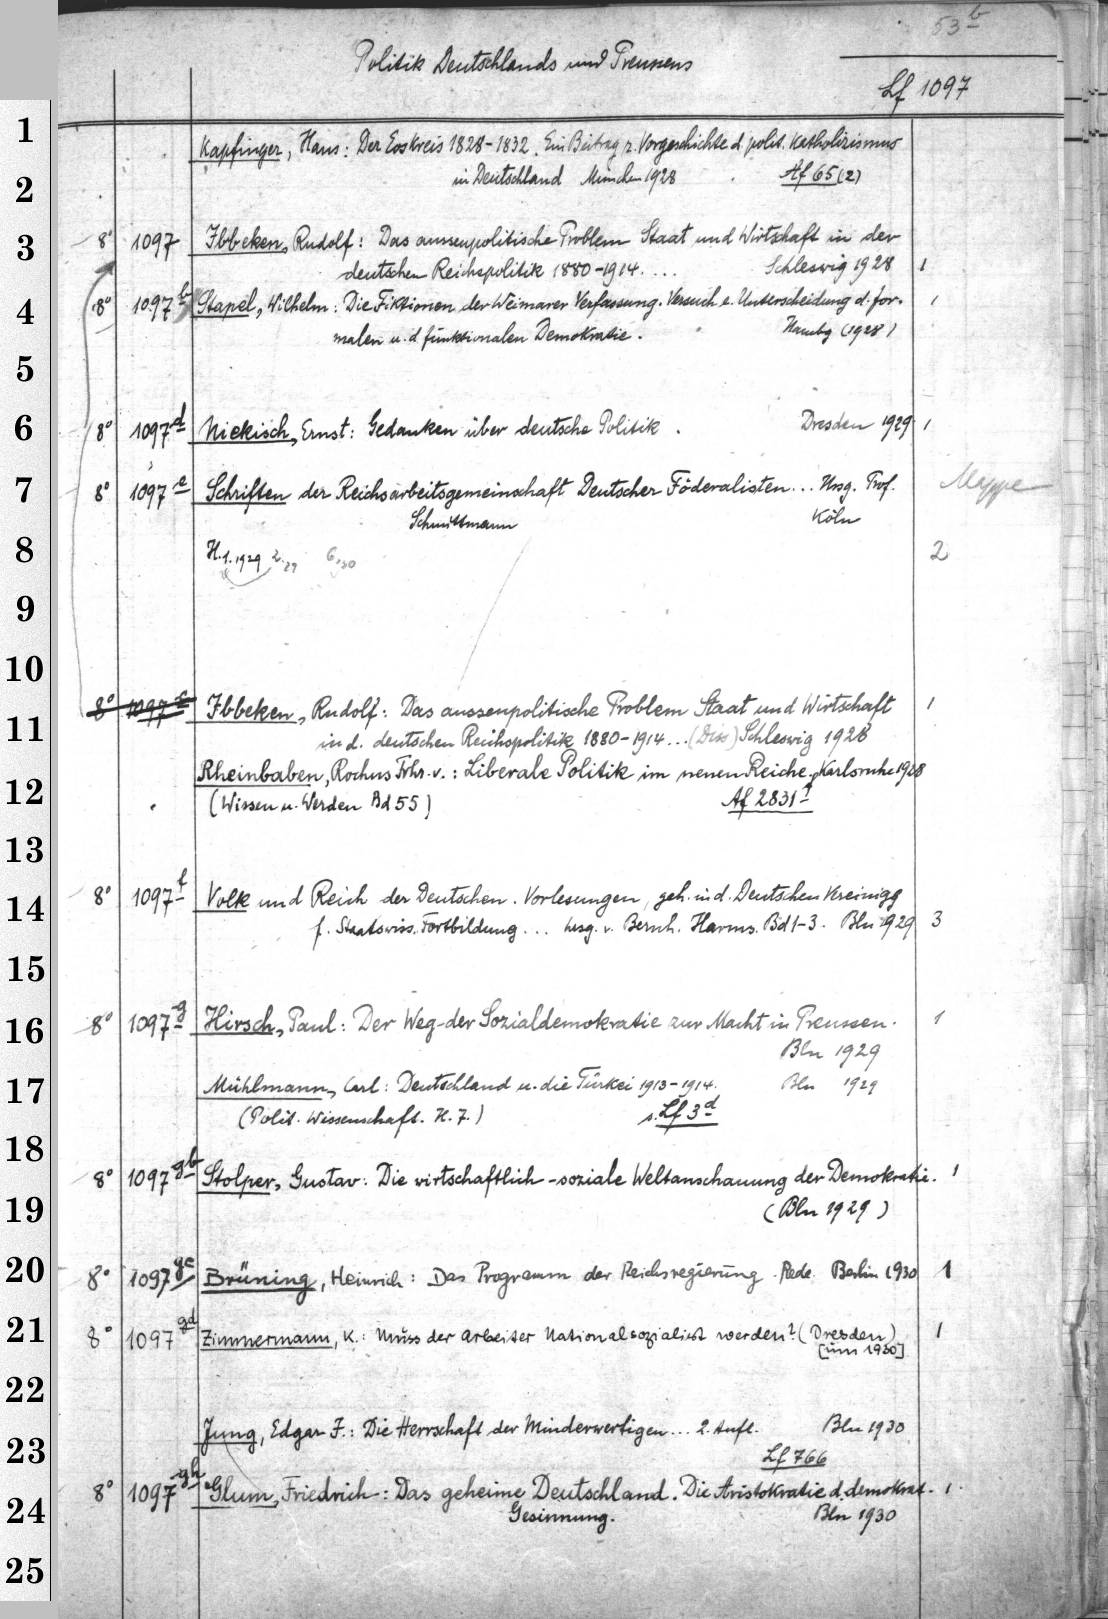 53 b
Politik Deutschlands und Preussens
Lf 1097
1
Kapfinger, Hans: Der Eoskreis 1828-1832. Ein Beitrag z. Vorgeschichte d. polit. Katholizismus
2
in Deutschland München 1928 Af 65 (2)
3
8° 1097 Ibbeken, Rudolf: Das aussenpolitische Problem Staat und Wirtschaft in der
deutschen Reichspolitik 1880-1914.... Schleswig 1928 1
4
8° 1097 b Stapel, Wilhelm: Die Fiktionen der Weimarer Verfassung. Versuch e. Unterscheidung d. for- 1
malen u. d funktionalen Demokratie. Hambg (1928)
5
6
8° 1097 d Niekisch, Ernst: Gedanken über deutsche Politik. Dresden 1929 1
7
8° 1097 e Schriften der Reichsarbeitsgemeinschaft Deutscher Föderalisten... Hrsg. Prof. Mappe
Schmittmann Köln
8
H. 1. 1929 2. 29 6. 30 2
9
10
8° 1097 c Ibbeken, Rudolf: Das aussenpolitische Problem Staat und Wirtschaft 1
11
in d. deutschen Reichspolitik 1880-1914...(Diss) Schleswig 1928
Rheinbaben, Rochus Frhr. v.: Liberale Politik im neuen Reiche. Karlsruhe 1928
12
(Wissen u. Werden Bd 55) Af 2831
13
14
8° 1097 f Volk und Reich der Deutschen. Vorlesungen, geh. in d. Deutschen Vereinigg
f. Staatswiss. Fortbildung... hrsg. v. Bernh. Harms. Bd 1-3. Bln 1929 3
15
16
8° 1097 g Hirsch, Paul: Der Weg der Sozialdemokratie zur Macht in Preussen. 1
Bln 1929
17
Mühlmann, Carl: Deutschland u. die Türkei 1913-1914. Bln 1929
(Polit. Wissenschaft. H. 7.) s. Lf 3 d
18
8° 1097 gb Stolper, Gustav: Die wirtschaftlich-soziale Weltanschauung der Demokratie. 1
19
(Bln 1929)
20
8° 1097 gc Brüning, Heinrich: Das Programm der Reichsregierung. Rede. Berlin 1930 1
21
8° 1097 gd Zimmermann, K.: Muss der Arbeiter Nationalsozialist werden? (Dresden) 1
[um 1930]
22
Jung, Edgar J.: Die Herrschaft der Minderwertigen... 2. Aufl. Bln 1930
23
Lf 766
8° 1097 gh Glum, Friedrich: Das geheime Deutschland. Die Aristokratie d. demokrat. 1
24
Gesinnung. Bln 1930
25